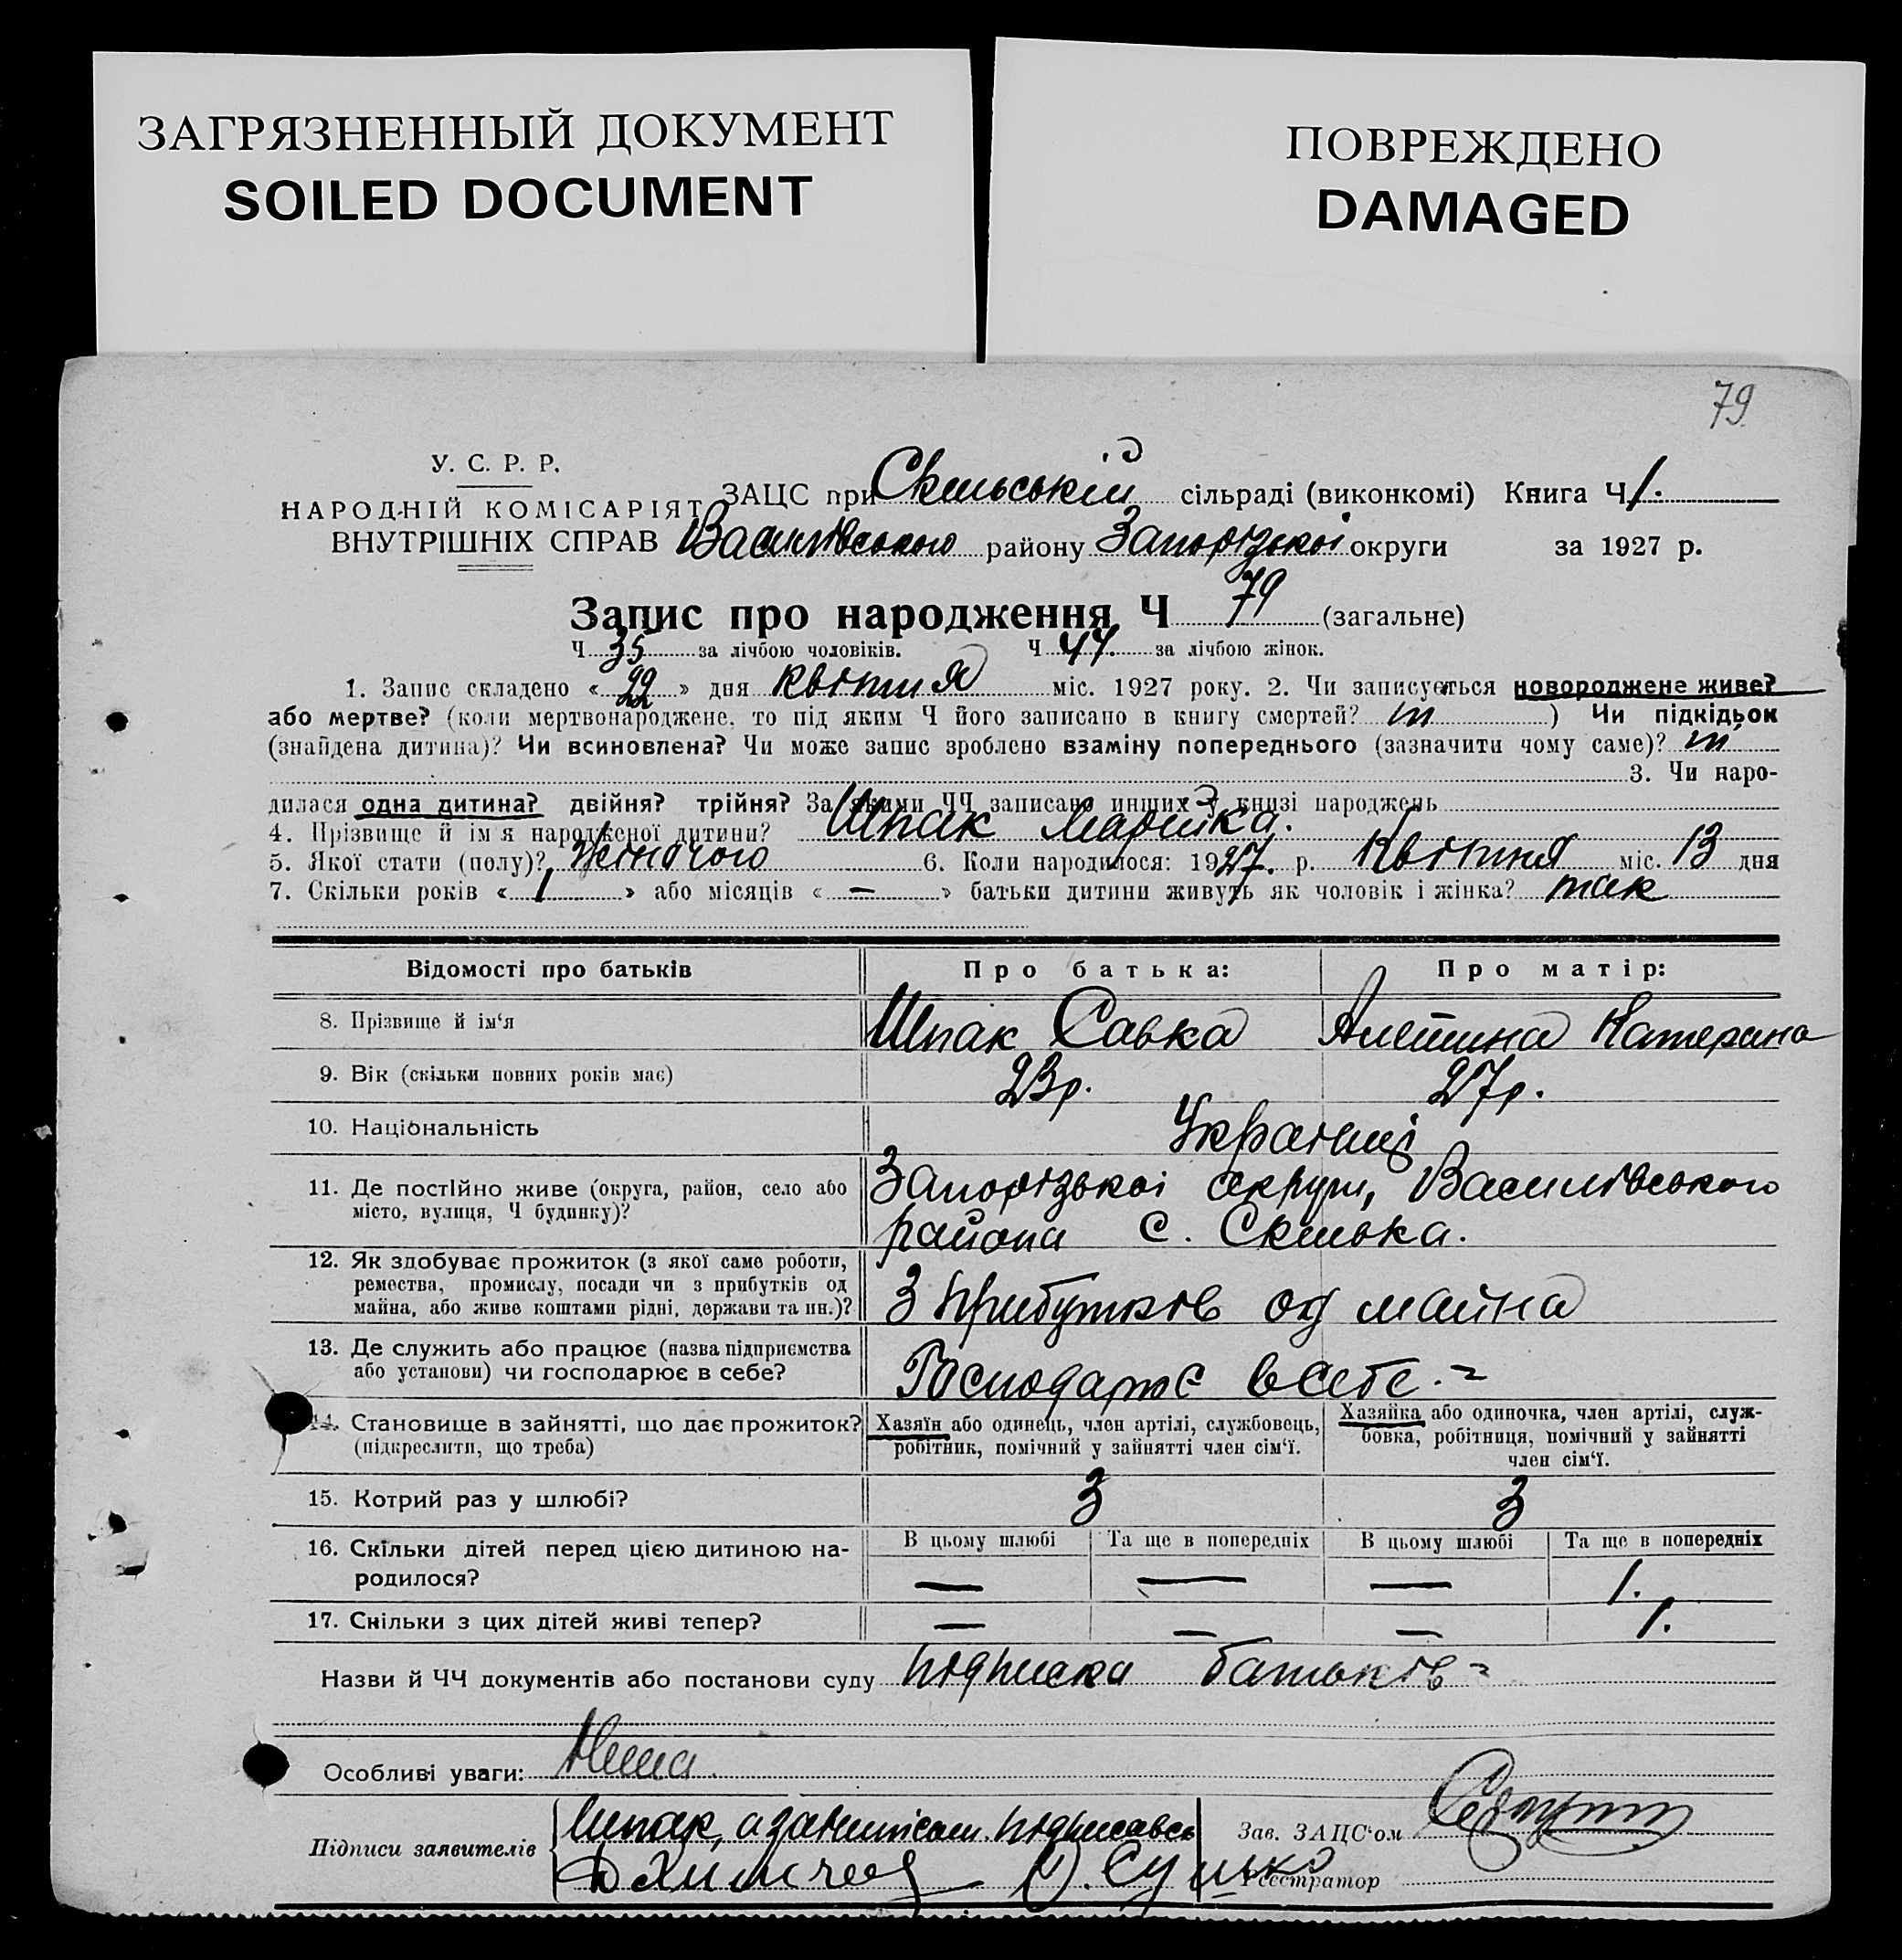 ЗАГРЯЗНЕННЫЙ ДОКУМЕНТ
SOILED DOCUMENT
ПОВРЕЖДЕНО
DAMAGED
79
У. С. Р. Р.
НАРОДНІЙ КОМІСАРІЯТ
ВНУТРІШНІХ СПРАВ
ЗАЦС при Скельській сільраді (виконкомі) Книга Ч 1.
Василівського району Запорізької округи за 1927 р.
Запис про народження Ч 79 (загальне)
Ч 35 за лічбою чоловіків. Ч 44. за лічбою жінок.
1. Запис складено « 22 » дня квітня міс. 1927 року. 2. Чи записується новороджене живе?
або мертве? (коли мертвонароджене, то під яким Ч його записано в книгу смертей? ) Чи підкідьок
(знайдена дитина)? Чи всиновлена? Чи може запис зроблено взаміну попереднього (зазначити чому саме)?
3. Чи наро-
дилася одна дитина? двійня? трійня? За якими ЧЧ записано инших у книзі народжень
4. Прізвище й ім'я народженої дитини? Шпак Марійка.
5. Якої стати (полу)? Жіночого 6. Коли народилося: 1927. р. Квітня міс. 13 дня
7. Скільки років « 1 » або місяців « — » батьки дитини живуть як чоловік і жінка? так
Відомості про батьків Про батька: Про матір:
8. Прізвище й ім'я Шпак Савка Катерина
9. Вік (скільки повних років має) 23р. 27р.
10. Національність Українці
11. Де постійно живе (округа, район, село або Запорізької округи, Василівського
місто, вулиця, Ч будинку)? района с. Скелька.
12. Як здобуває прожиток (з якої саме роботи,
ремества, промислу, посади чи з прибутків од
майна, або живе коштами рідні, держави та ин.)? З прибутків од майна
13. Де служить або працює (назва підприємства
або установи) чи господарює в себе? Господарює в себе.
14. Становище в зайнятті, що дає прожиток?
(підкреслити, що треба)
Хазяїн або одинець, член артілі, службовець,
робітник, помічний у зайнятті член сім'ї.
Хазяйка або одиночка, член артілі, служ-
бовка, робітниця, помічний у зайнятті
член сім'ї.
15. Котрий раз у шлюбі? 3 3
В цьому шлюбі Та ще в попередніх В цьому шлюбі Та ще в попередніх
16. Скільки дітей перед цією дитиною на-
родилося? — — — 1.
17. Скільки з цих дітей живі тепер? — — — 1.
Назви й ЧЧ документів або постанови суду підписка батьків
Особливі уваги: Нема.
Підписи заявителів Шпак, а за підписавсь
Зав. ЗАЦС'ом
Реєстратор